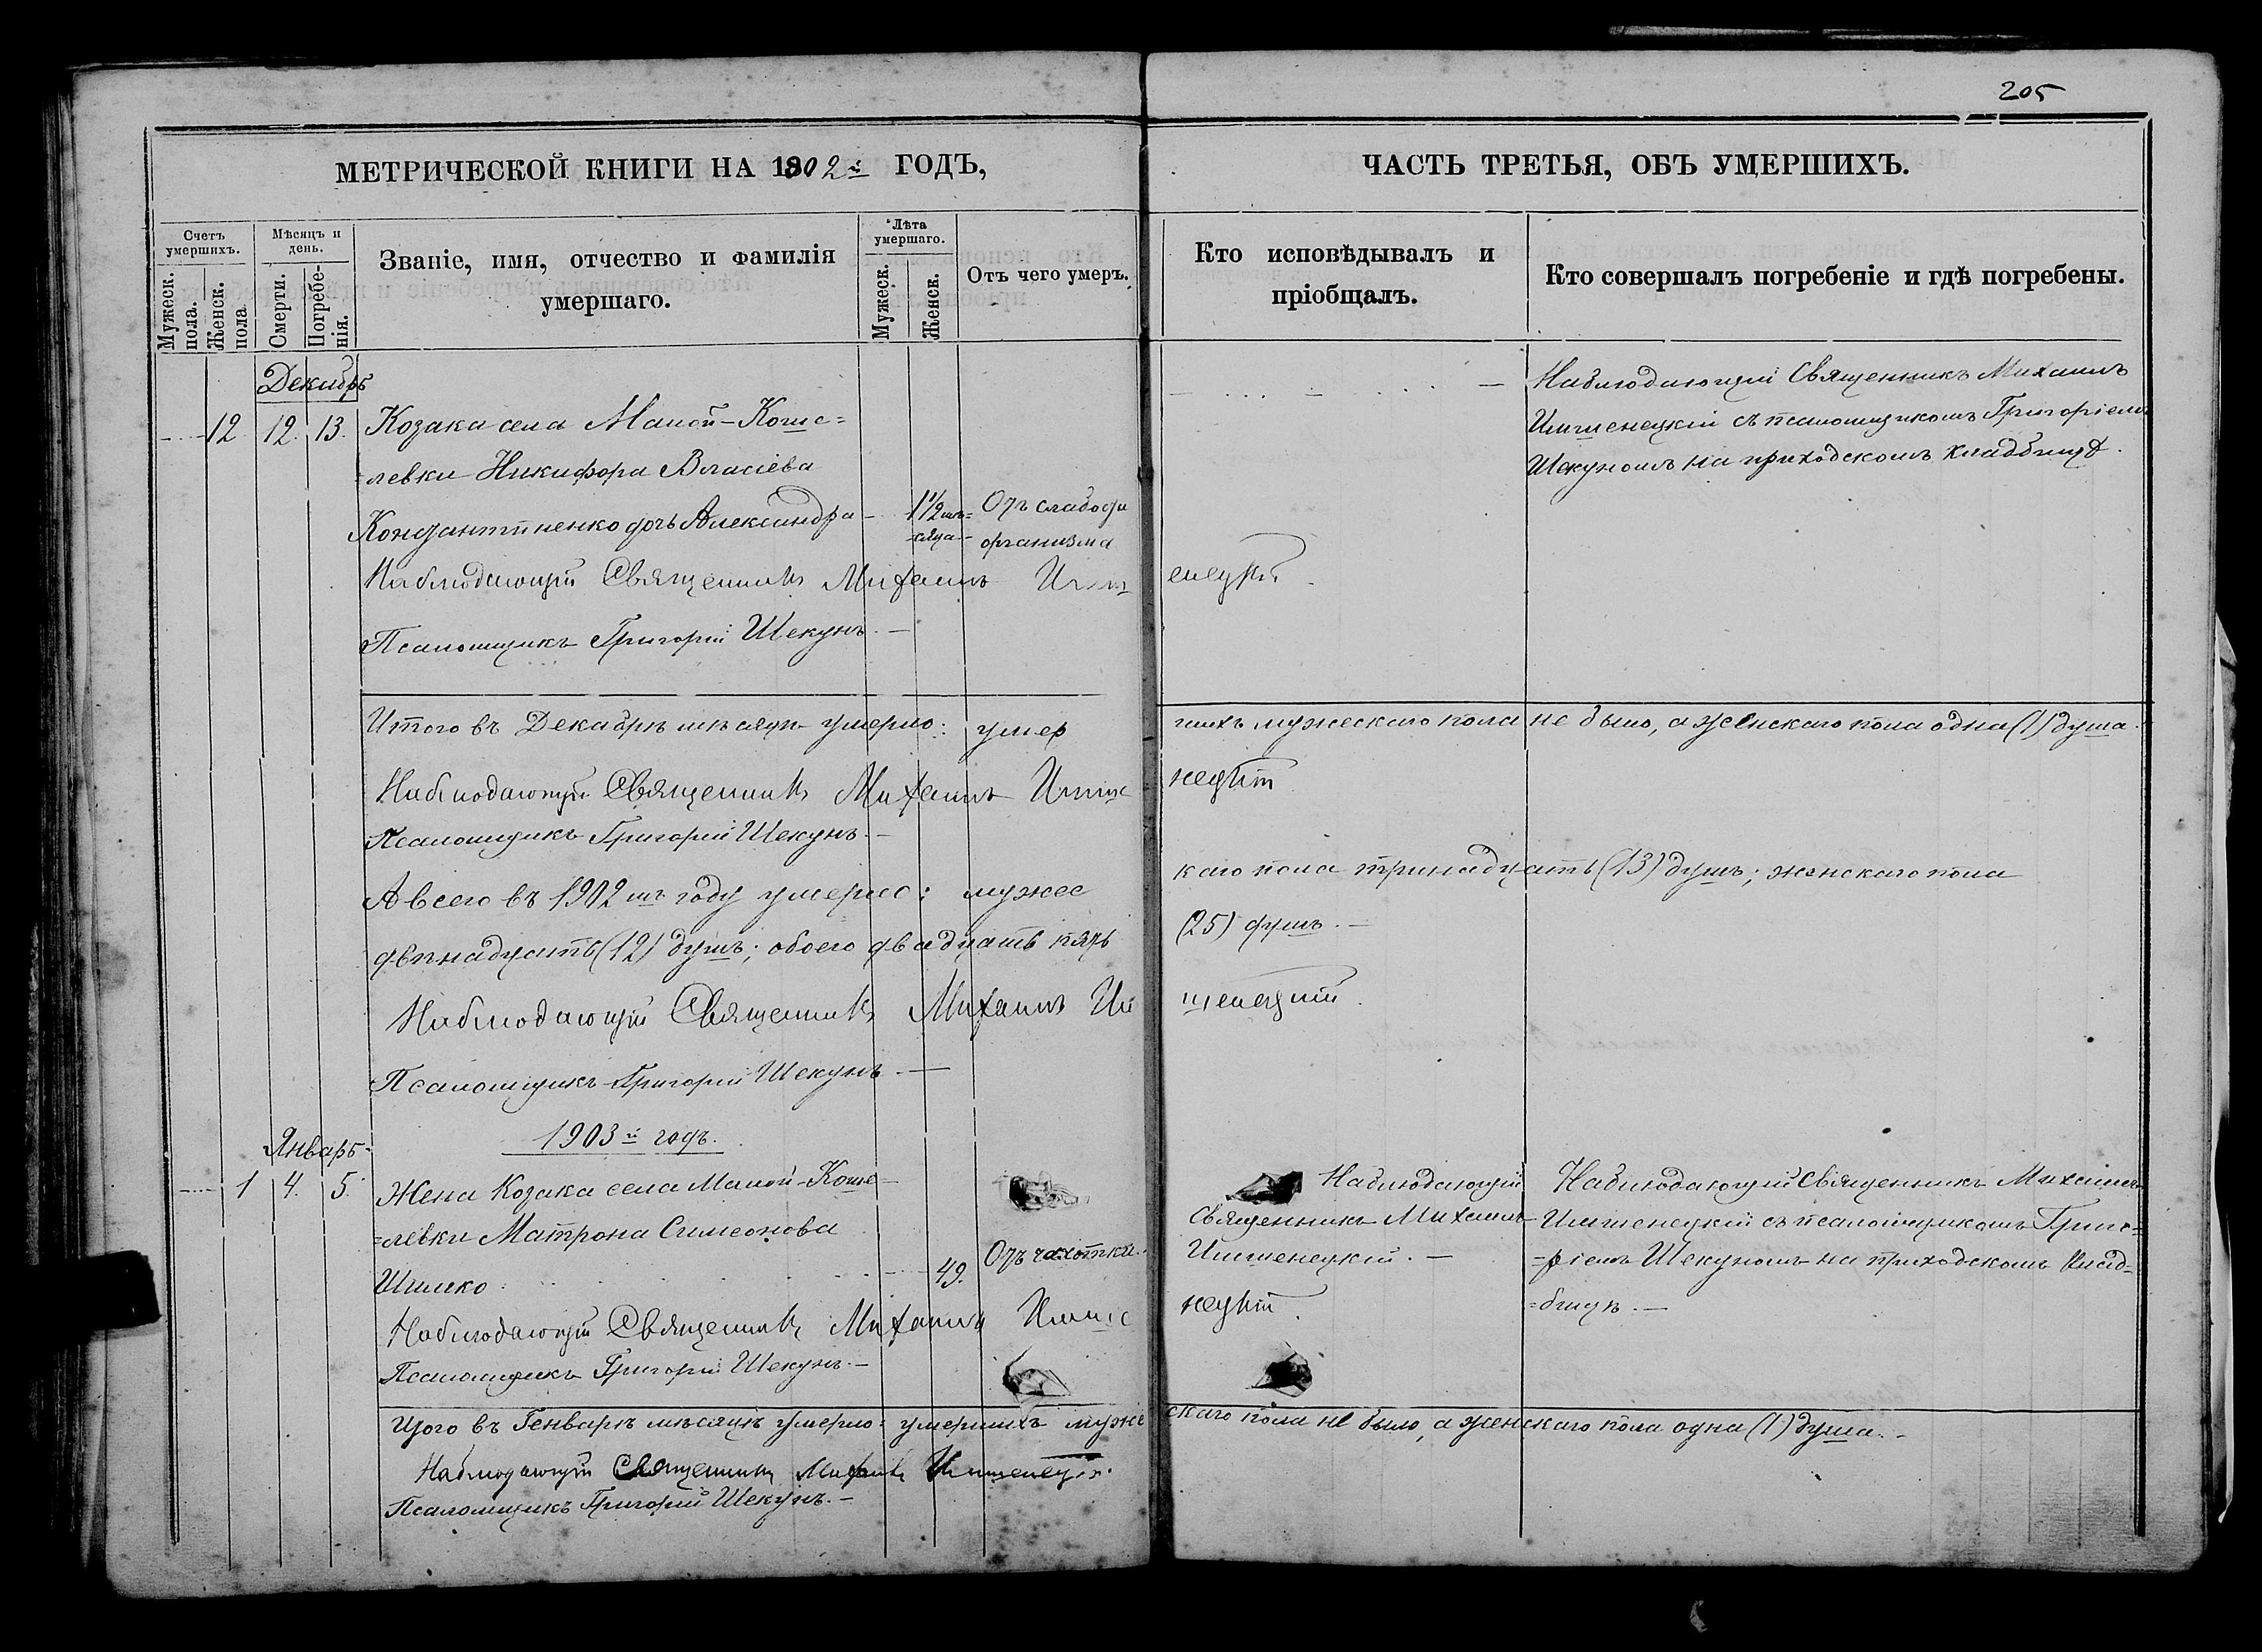 205
МЕТРИЧЕСКОЙ КНИГИ НА 1902й ГОДЪ,
ЧАСТЬ ТРЕТЬЯ, ОБЪ УМЕРШИХЪ.
Счетъ умершихъ.
Мужеск. пола.
Женск. пола
Мѣсяцъ и день.
Смерти.
Погребенія.
Званіе, имя, отчество и фамилія умершаго.
Лѣта умершаго.
Мужеск.
Женск.
Отъ чего умеръ.
Кто исповѣдывалъ и пріобщалъ.
Кто совершалъ погребеніе и гдѣ погребены.
Декабрь
12 12. 13. Козака села Малой-Коше=
=левки Никифора Власіева
Константиненко дочь Александра 1 1/2 мѣ=
=сяца
Отъ слабости
организма
Наблюдающій Священникъ Михаилъ
Имшенецкій съ псаломщикомъ Григоріемъ
Шекуномъ на приходскомъ кладбищѣ.
Наблюдающій Священникъ Михаилъ Имшенецкій.
Псаломщикъ Григорій Шекунъ.
Итого въ Декабрѣ мѣсяцѣ умерло: умершихъ мужескаго пола не было, а женскаго пола одна (1) душа.
Наблюдающій Священникъ Михаилъ Имшенецкій
Псаломщикъ Григорій Шекунъ.
А всего въ 1902мъ году умерло: мужескаго пола тринадцать (13) душъ; женскаго пола
двѣнадцать (12) душъ; обоего двадцать пять (25) душъ.
Наблюдающій Священникъ Михаилъ Имшенецкій.
Псаломщикъ Григорій Шекунъ.
1903й годъ.
Январь
1 4. 5. Жена Козака села Малой-Коше=
=левки Матрона Симеонова
Шилко 49. Отъ чахотки.
Наблюдающій
Священникъ Михаилъ
Имшенецкій.
Наблюдающій Священникъ Михаилъ
Имшенецкій съ псаломщикомъ Григо=
=ріемъ Шекуномъ на приходскомъ клад=
=бищѣ.
Наблюдающій Священникъ Михаилъ Имшенецкій.
Псаломщикъ Григорій Шекунъ.
Итого въ Генварѣ мѣсяцѣ умерло: умершихъ мужескаго пола не было, а женскаго пола одна (1) душа.
Наблюдающій Священникъ Михаилъ Имшенецкій.
Псаломщикъ Григорій Шекунъ.